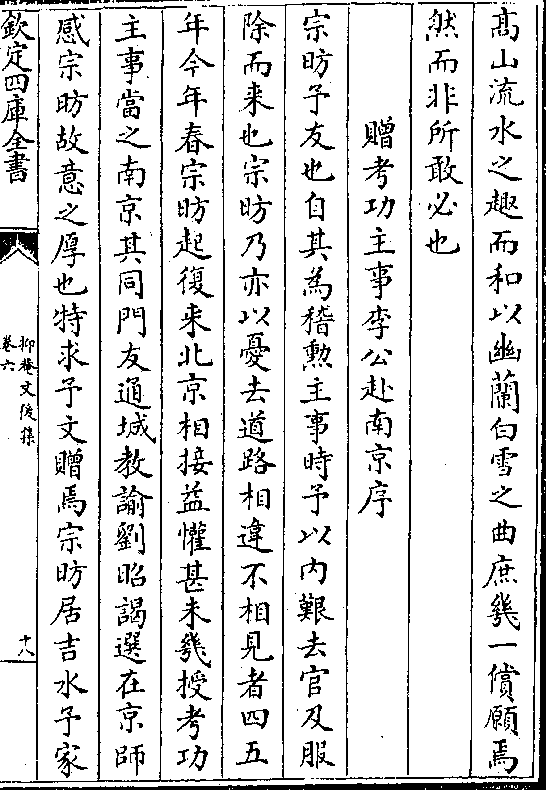 髙山流水之趣而和以幽蘭白雪之曲庶幾一償願焉
然而非所敢必也
贈考功主事李公赴南京序
宗昉予友也自其為稽勲主事時予以内艱去官及服
除而来也宗昉乃亦以憂去道路相違不相見者四五
年今年春宗昉起復来北京相接益懽甚未幾授考功
主事當之南京其同門友通城教諭劉昭謁選在京師
感宗昉故意之厚也特求予文贈焉宗昉居吉水予家
欽定四庫全書
抑菴文後集
卷六
十八